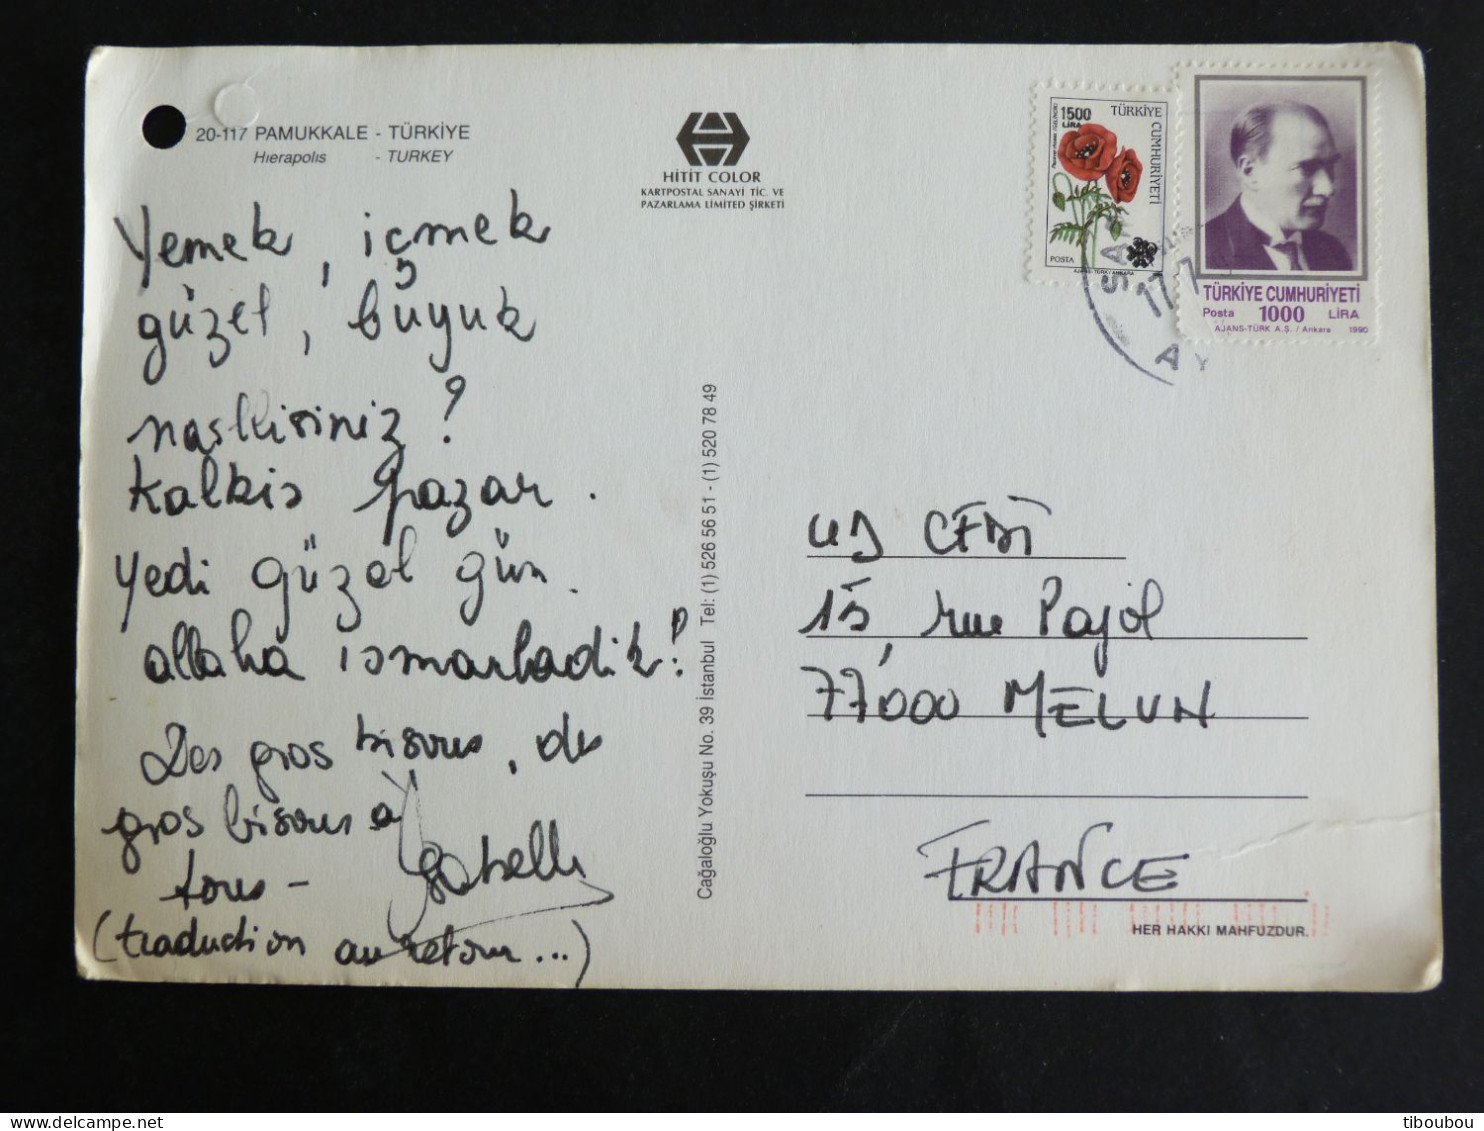 20-117 PAMUKKALE - TÜRKİYE
Hierapolis - TURKEY
HİTİT COLOR
KARTPOSTAL SANAYİ TİC. VE
PAZARLAMA LİMİTED ŞİRKETİ
1500
LİRA
TÜRKİYE CUMHURİYETİ
POSTA
AJANS-TÜRK / ANKARA
TÜRKİYE CUMHURİYETİ
Posta 1000 LİRA
AJANS-TÜRK A.Ş. / Ankara 1990
Yemek, içmek
güzel, büyük
naslkisiniz?
Kalkis pazar.
Yedi güzel gün.
allaha ismarladik!
Des gros bisous, des
gros bisous à
tous - Isabelle
(traduction au retour...)
Cağaloğlu Yokuşu No. 39 İstanbul Tel: (1) 526 56 51 - (1) 520 78 49
15, rue Pajol
77000 MELUN
FRANCE
HER HAKKI MAHFUZDUR.